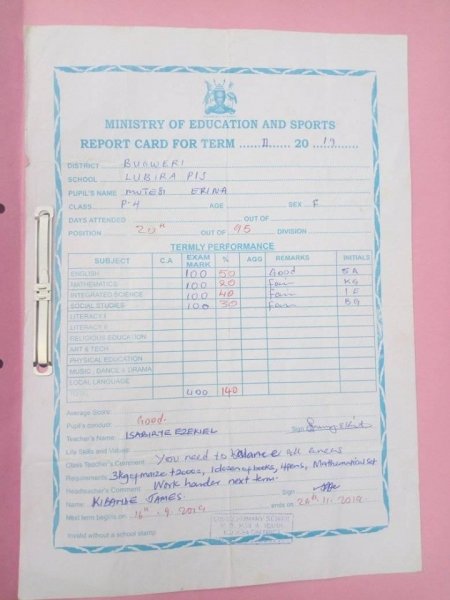 MINISTRY OF EDUCATION AND SPORTS
REPORT CARD FOR TERM II 20 19
DISTRICT BUGWERI
SCHOOL LUBIRA P/S
PUPIL'S NAME MUTESI ERINA
CLASS P.4 AGE SEX F
DAYS ATTENDED OUT OF
POSITION 20th OUT OF 95 DIVISION
TERMLY PERFORMANCE
SUBJECT C.A EXAM MARK % AGG REMARKS INITIALS
ENGLISH 100 50 Good
MATHEMATICS 100 20 Fair KG
INTEGRATED SCIENCE 100 40 Fair I.E
SOCIAL STUDIES 100 30 Fair BG
LITERACY I
LITERACY II
RELIGIOUS EDUCATION
ART & TECH
PHYSICAL EDUCATION
MUSIC, DANCE & DRAMA
LOCAL LANGUAGE
TOTAL 400 140
Average Score:
Pupil's conduct: Good.
Teacher's Name: ISABIRYE EZEKIEL Sign
Life Skills and Values:
Class Teacher's Comment You need to balance all areas
Requirements 3kg of maize + 2000=, 1 dozen of books, 4 pens, Mathematical set
Headteacher's Comment Work harder next term.
Name: KIBANDE JAMES. Sign
Next term begins on 16th.9.2019 ends on 2019
Invalid without a school stamp